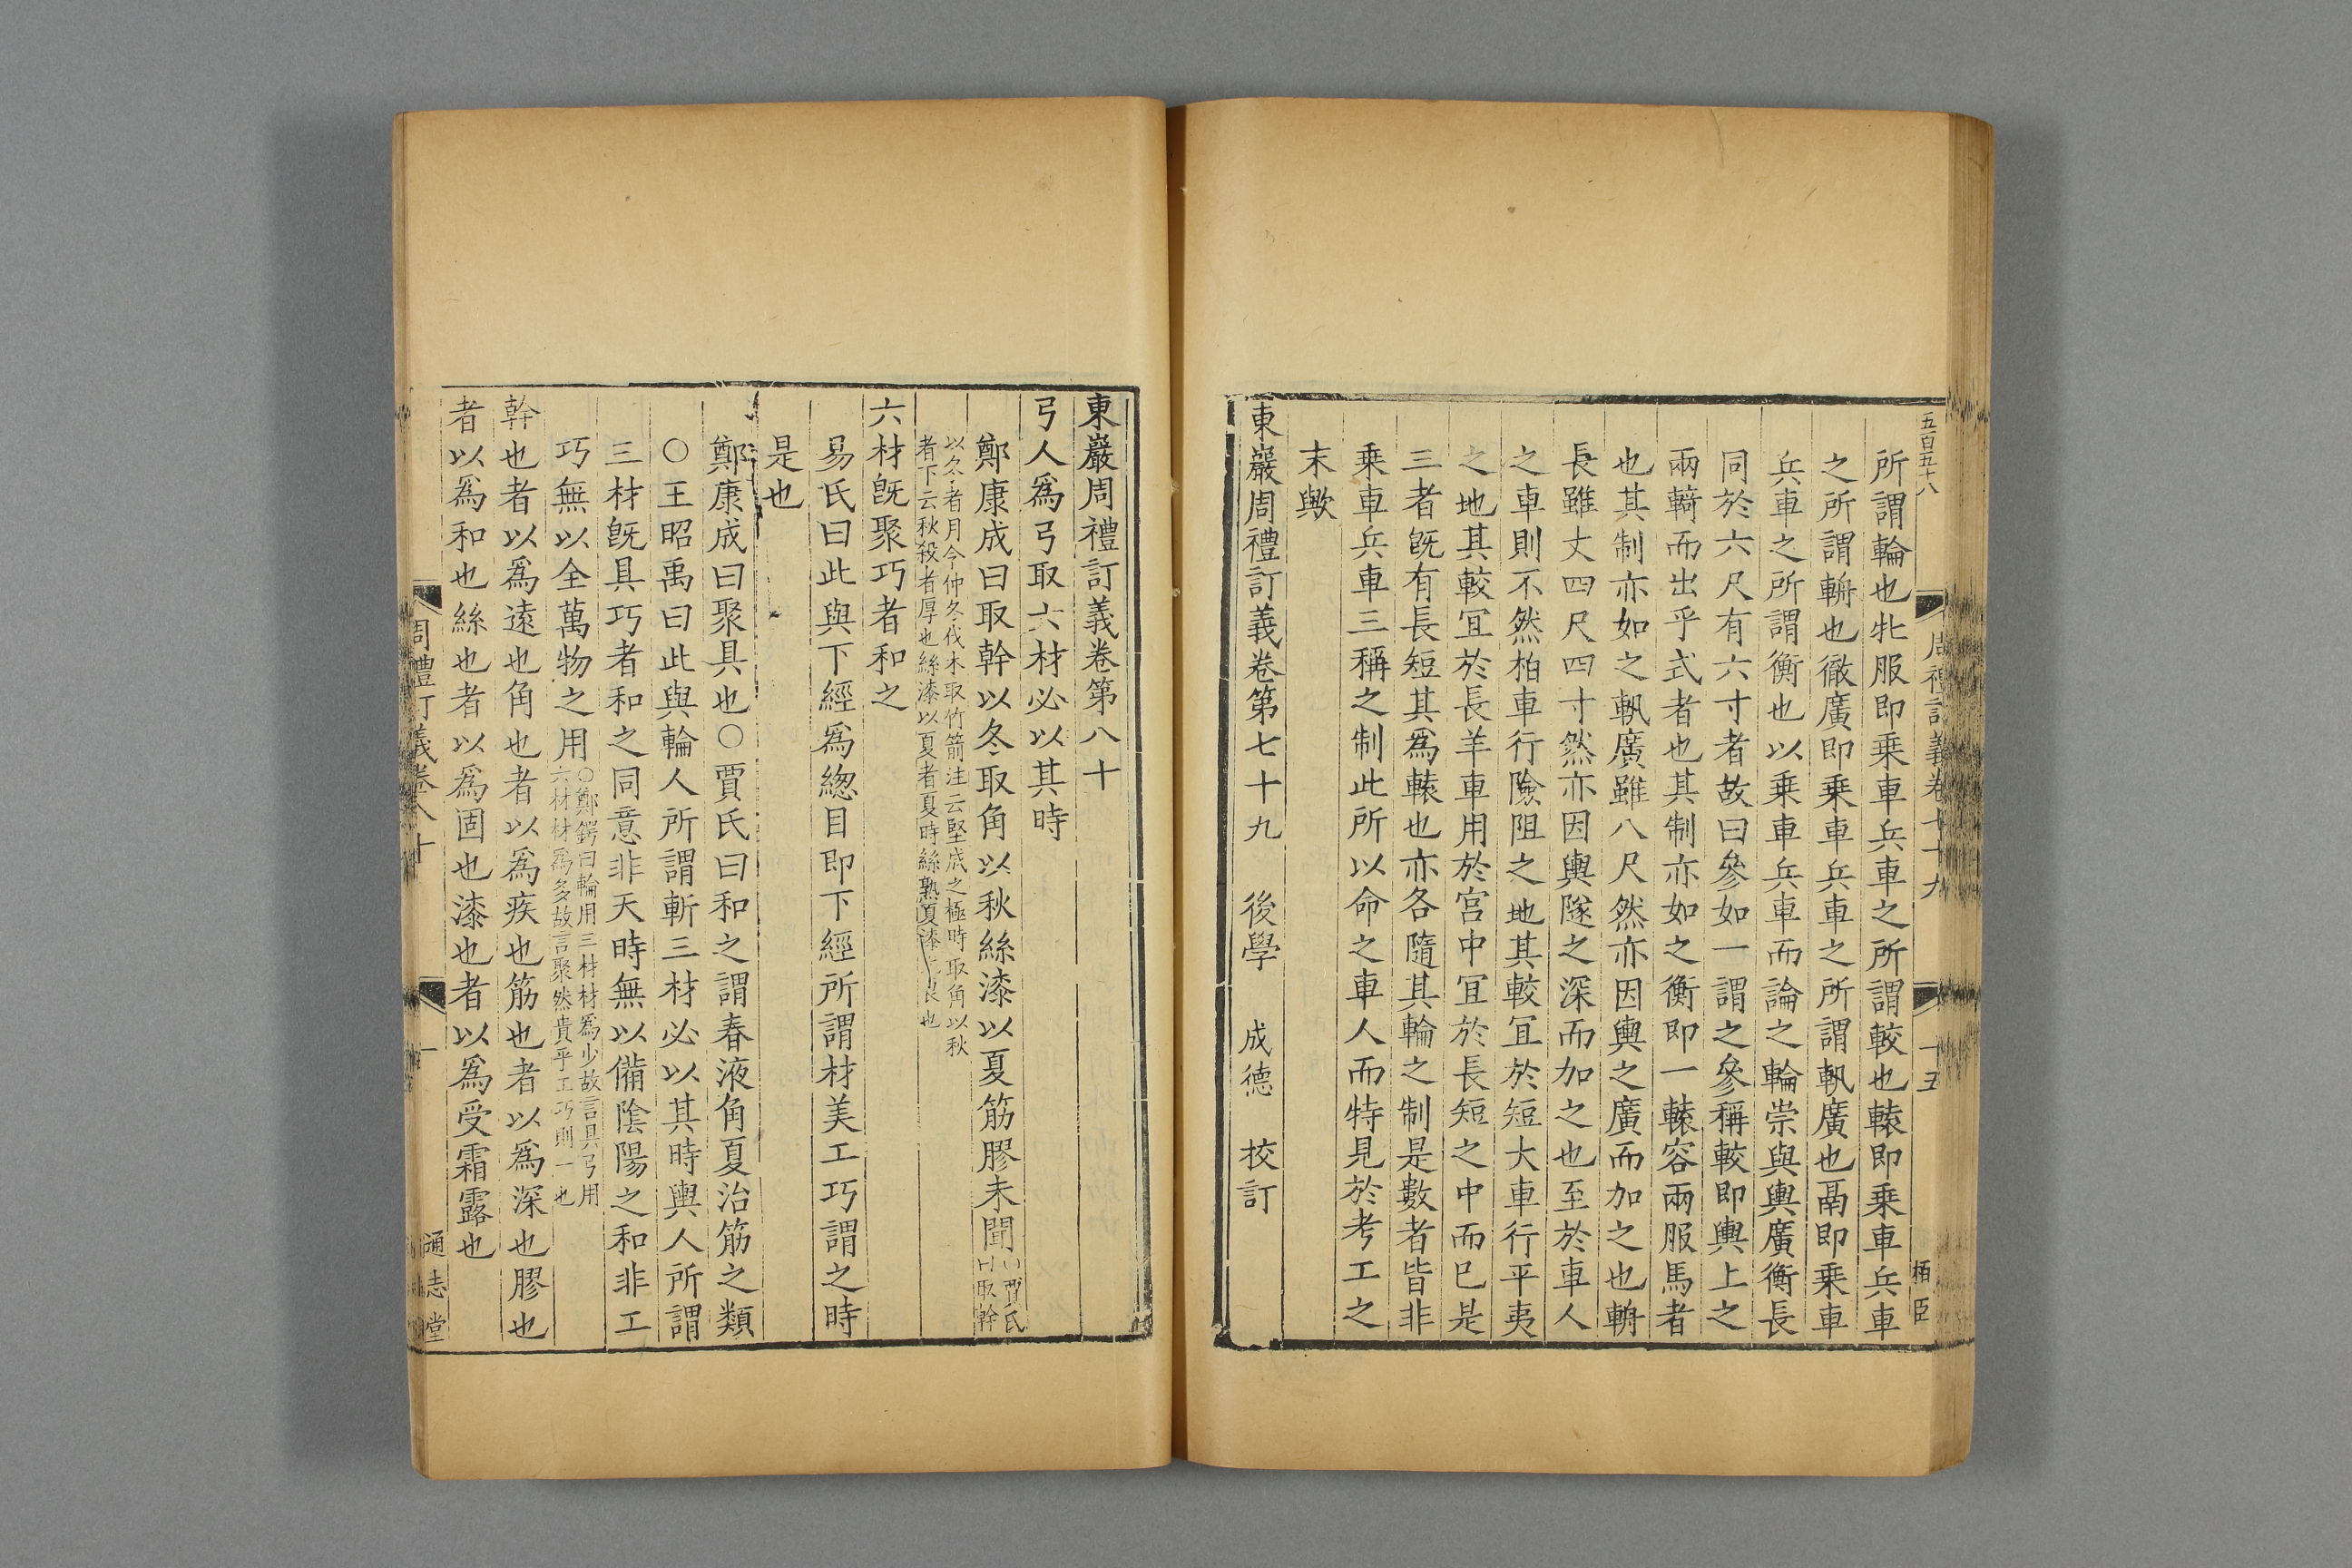 五百五十八
周禮訂義卷七十九
十五
栢臣
所謂輪也牝服即乗車兵車之所謂較也轅即乗車兵車
之所謂輈也徹廣即乗車兵車之所謂軓廣也鬲即乗車
兵車之所謂衡也以乗車兵車而論之輪崇與輿廣衡長
同於六尺有六寸者故曰參如一謂之參稱較即輿上之
兩輢而出乎式者也其制亦如之衡即一轅容兩服馬者
也其制亦如之軓廣雖八尺然亦因輿之廣而加之也輈
長雖丈四尺四寸然亦因輿隧之深而加之也至於車人
之車則不然柏車行險阻之地其較冝於短大車行平夷
之地其較冝於長羊車用於宫中冝於長短之中而已是
三者旣有長短其爲轅也亦各隨其輪之制是數者皆非
乗車兵車三稱之制此所以命之車人而特見於考工之
末歟
東巖周禮訂義卷第七十九 後學 成德 校訂
東巖周禮訂義卷第八十
弓人爲弓取六材必以其時
鄭康成曰取幹以冬取角以秋絲漆以夏筋膠未聞○賈氏曰取幹
以冬者月令仲冬伐木取竹箭注云堅成之極時取角以秋
者下云秋殺者厚也絲漆以夏者夏時絲熟夏漆良也
六材旣聚巧者和之
易氏曰此與下經爲緫目即下經所謂材美工巧謂之時
是也
鄭康成曰聚具也○賈氏曰和之謂春液角夏治筋之類
○王昭禹曰此與輪人所謂斬三材必以其時輿人所謂
三材旣具巧者和之同意非天時無以備陰陽之和非工
巧無以全萬物之用○鄭鍔曰輪用三材材爲少故言具弓用
六材材爲多故言聚然貴乎工巧則一也
幹也者以爲遠也角也者以爲疾也筋也者以爲深也膠也
者以爲和也絲也者以爲固也漆也者以爲受霜露也
周禮訂義卷八十
一
通志堂